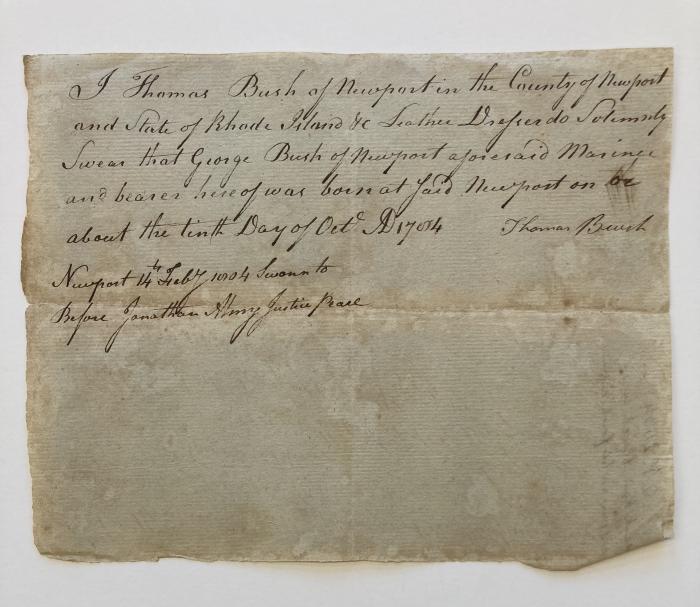 I Thomas Bush of Newport in the County of Newport
and State of Rhode Island &c Leather Dresser do Solemnly
Swear that George Bush of Newport aforesaid Marine
and bearer hereof was born at said Newport on or
about the tinth Day of Octr. AD 1784 Thomas Bush
Newport 14th Feby 1804 Sworn to
Before Jonathan Almy Justice Peace